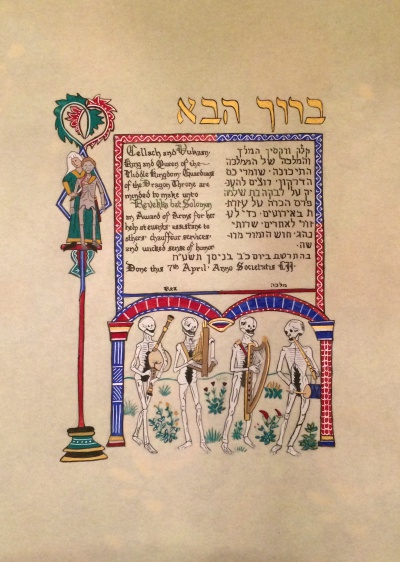 ברוך הבא
Cellach and Vukasin
King and Queen of the
Middle Kingdom, Guardians
of the Dragon Throne are
minded to make unto
bat Solomon
an Award of Arms for her
help at events, assistance to
others, chauffeur services
and wicked sense of humor
המלך
והמלכה של הממלכה
התיכונה, שומרי כס
הדרקון, רוצים להענ-
בת שלמה
פרס הכרה על
באירועים, כדי לע-
זור לאחרים, שרותי
נהג, חוש
ביום כב בניסן תשע״ח
Done this 7th April Anno Societatis LII
Rex
מלכה